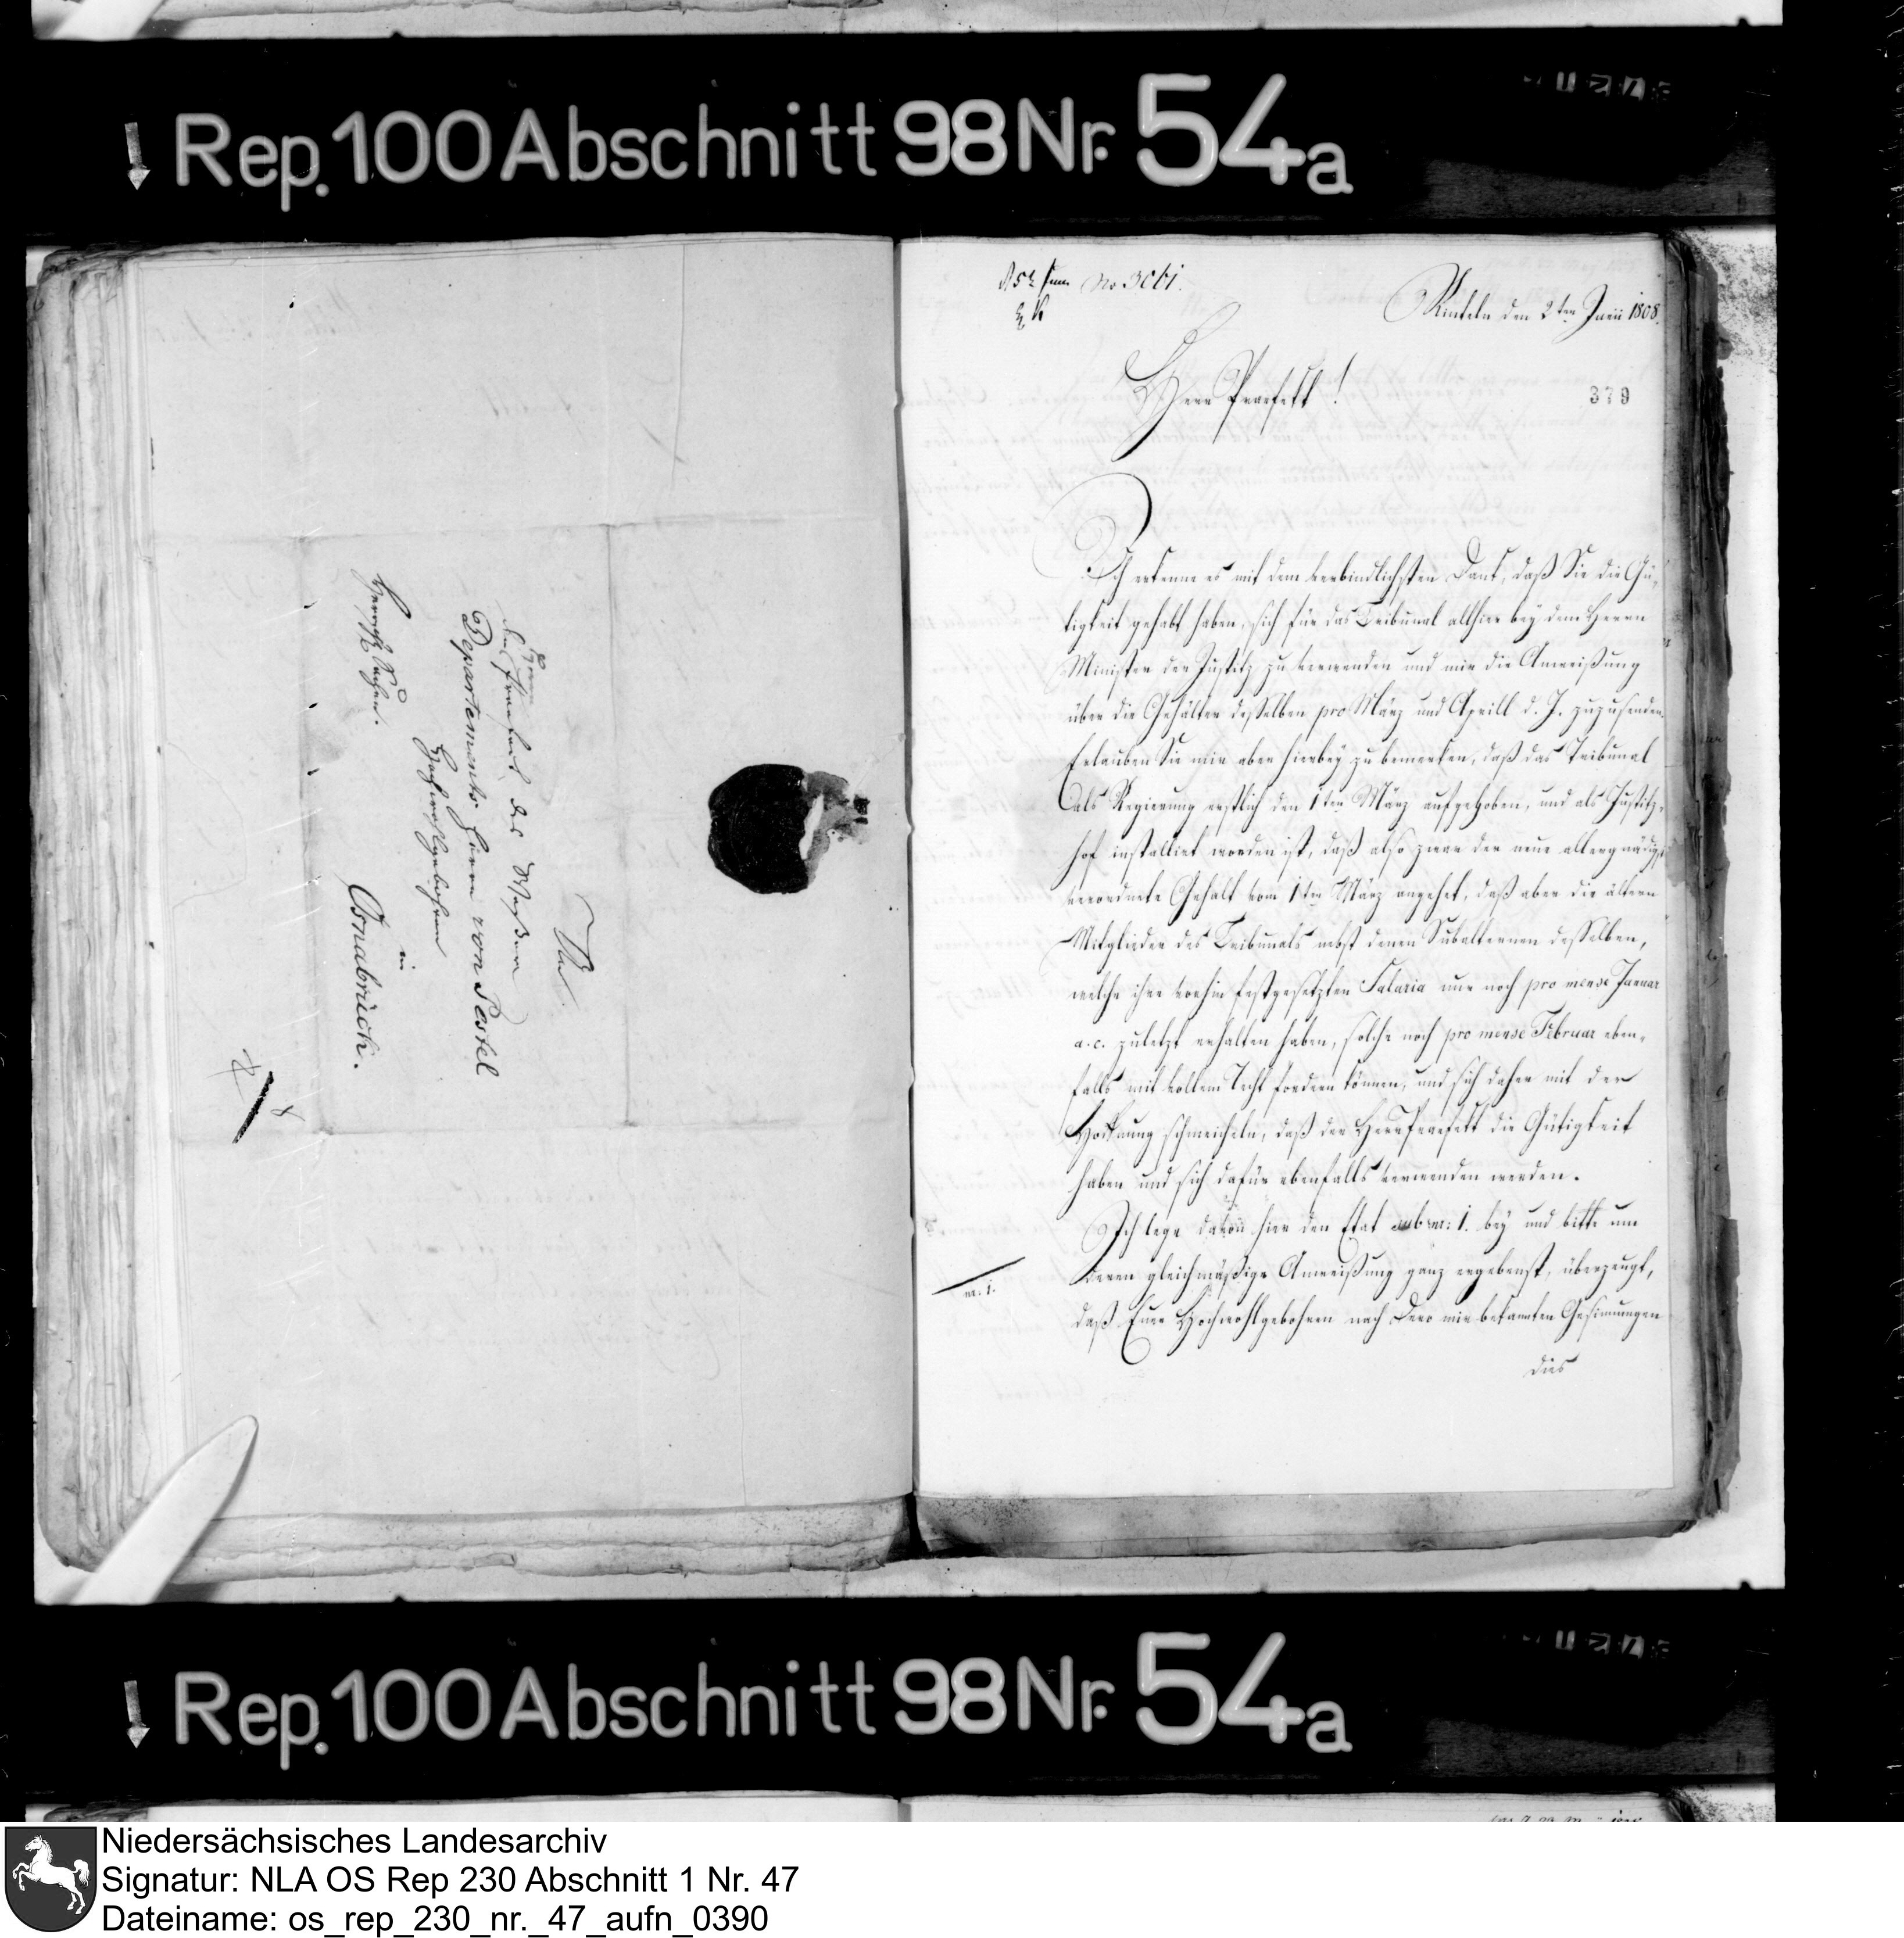 Rep. 100 Abschnitt 98 Nr. 54a
An
den Praefect des Weser
Departements, Herrn von Pestel
Hochwohlgebohren
in
Herrschl. Sachen. Osnabrück.
No 3061.
Rinteln den 2ten Junii 1808.
Herr Praefekt!
379
Ich erkenne es mit dem verbindlichsten Dank, daß Sie die Gü-
tigkeit gehabt haben, sich für das Tribunal allhier bey dem Herrn
Minister der Justitz zu verwenden und mir die Anweißung
über die Gehälter desselben pro März und Aprill d. J. zuzusenden.
Erlauben Sie mir aber hierbey zu bemerken, daß das Tribunal
als Regierung erstlich den 1ten März aufgehoben, und als Justitz-
hof installirt worden ist, daß also zwar der neue allergnädigst
verordnete Gehalt vom 1ten März angehet, daß aber die ältern
Mitglieder des Tribunals nebst denen Subalternen desselben,
welche ihre vorhin festgesetzten Salaria nur noch pro mense Januar
a. c. zuletzt erhalten haben, solche noch pro mense Februar eben-
falls mit vollem Recht fordern können, und sich daher mit der
Hofnung schmeicheln, daß der Herr Praefekt die Gütigkeit
haben und sich dafür ebenfalls verwenden werden.
Ich lege davon hier den Etat sub nr: 1. bey und bitte um
nr. 1.
deren gleichmäßige Anweißung ganz ergebenst, überzeugt,
daß Eure Hochwohlgebohren nach Dero mir bekannten Gesinnungen
dies
Rep. 100 Abschnitt 98 Nr. 54a
Niedersächsisches Landesarchiv
Signatur: NLA OS Rep 230 Abschnitt 1 Nr. 47
Dateiname: os_rep_230_nr._47_aufn_0390